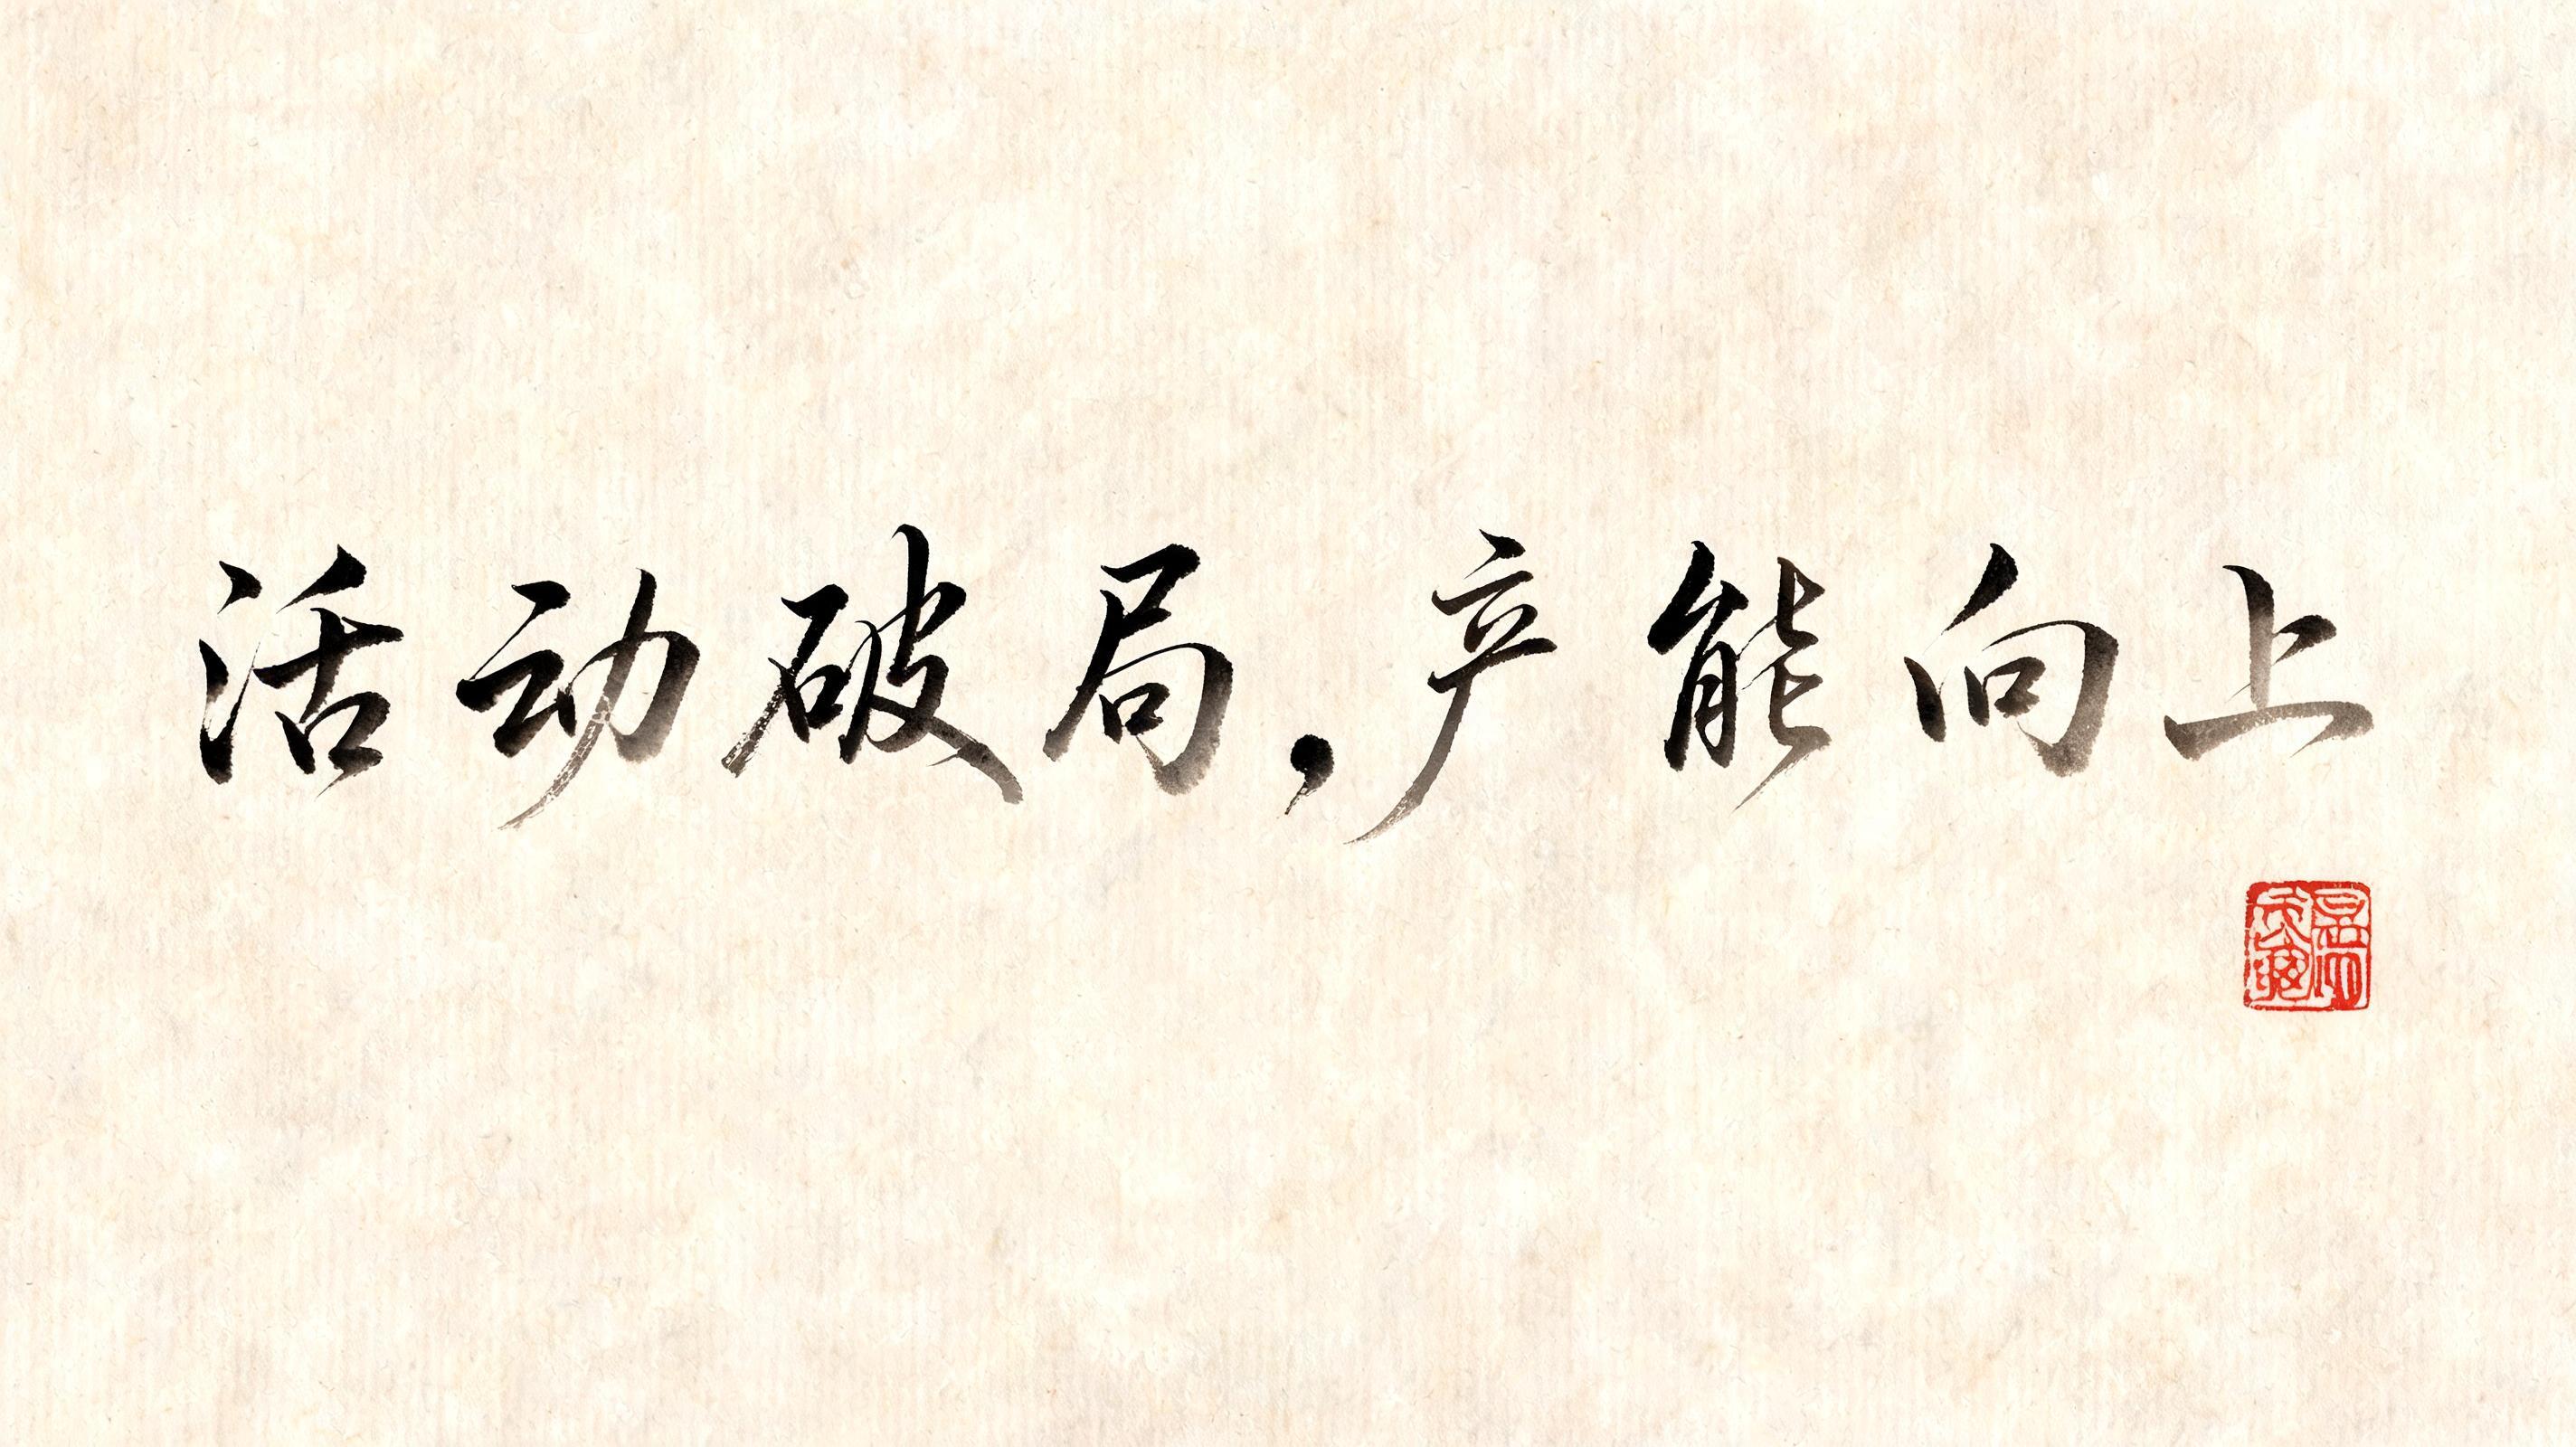 活动破局，产能向上